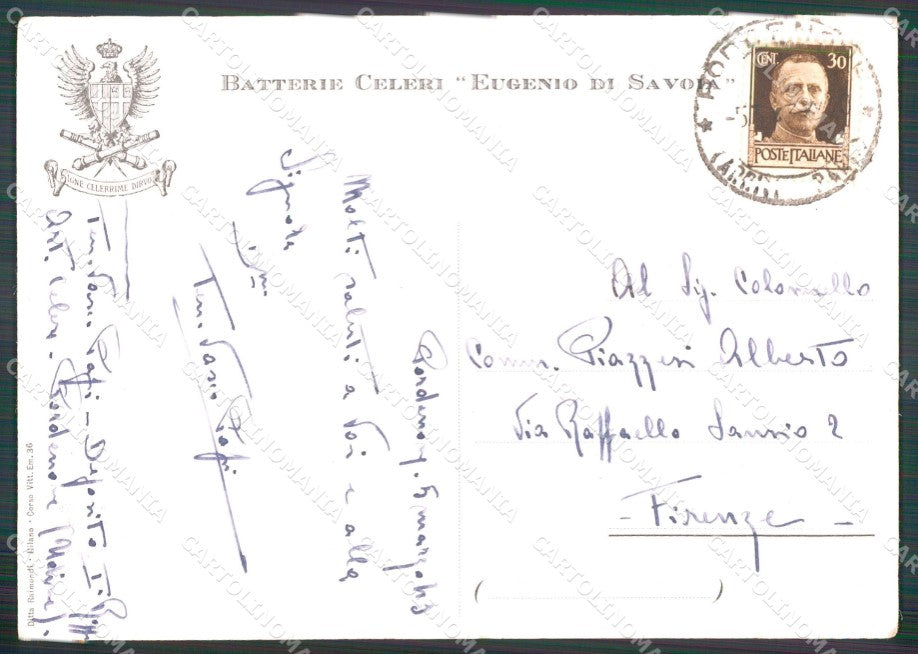 BATTERIE CELERI "EUGENIO DI SAVOIA"
CENT 30
POSTE ITALIANE
Pordenone, 5 marzo 43
Molti saluti a Voi e alla
Signora
Ten. Vasco
Ten. Vasco - Deposito
Art. Celere - Pordenone (Udine)
Al Sig. Colonnello
Comm. Piazzesi Alberto
Via Raffaello Sanzio 2
- Firenze -
Ditta Raimondi - Milano - Corso Vitt. Em. 36
CARTOLINOMANIA